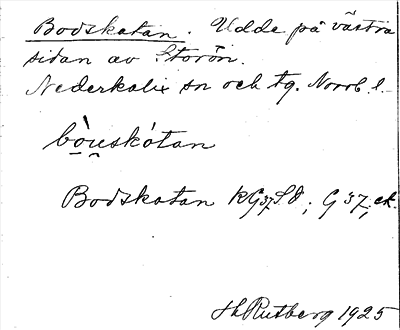 Bodskatan. Udde på västra
sidan av Storön.
Nederkalix sn och tg. Norrb. l.
bò̱u̯skótan
Bodskatan KG37SO; G 37; ek.
H Rutberg 1925